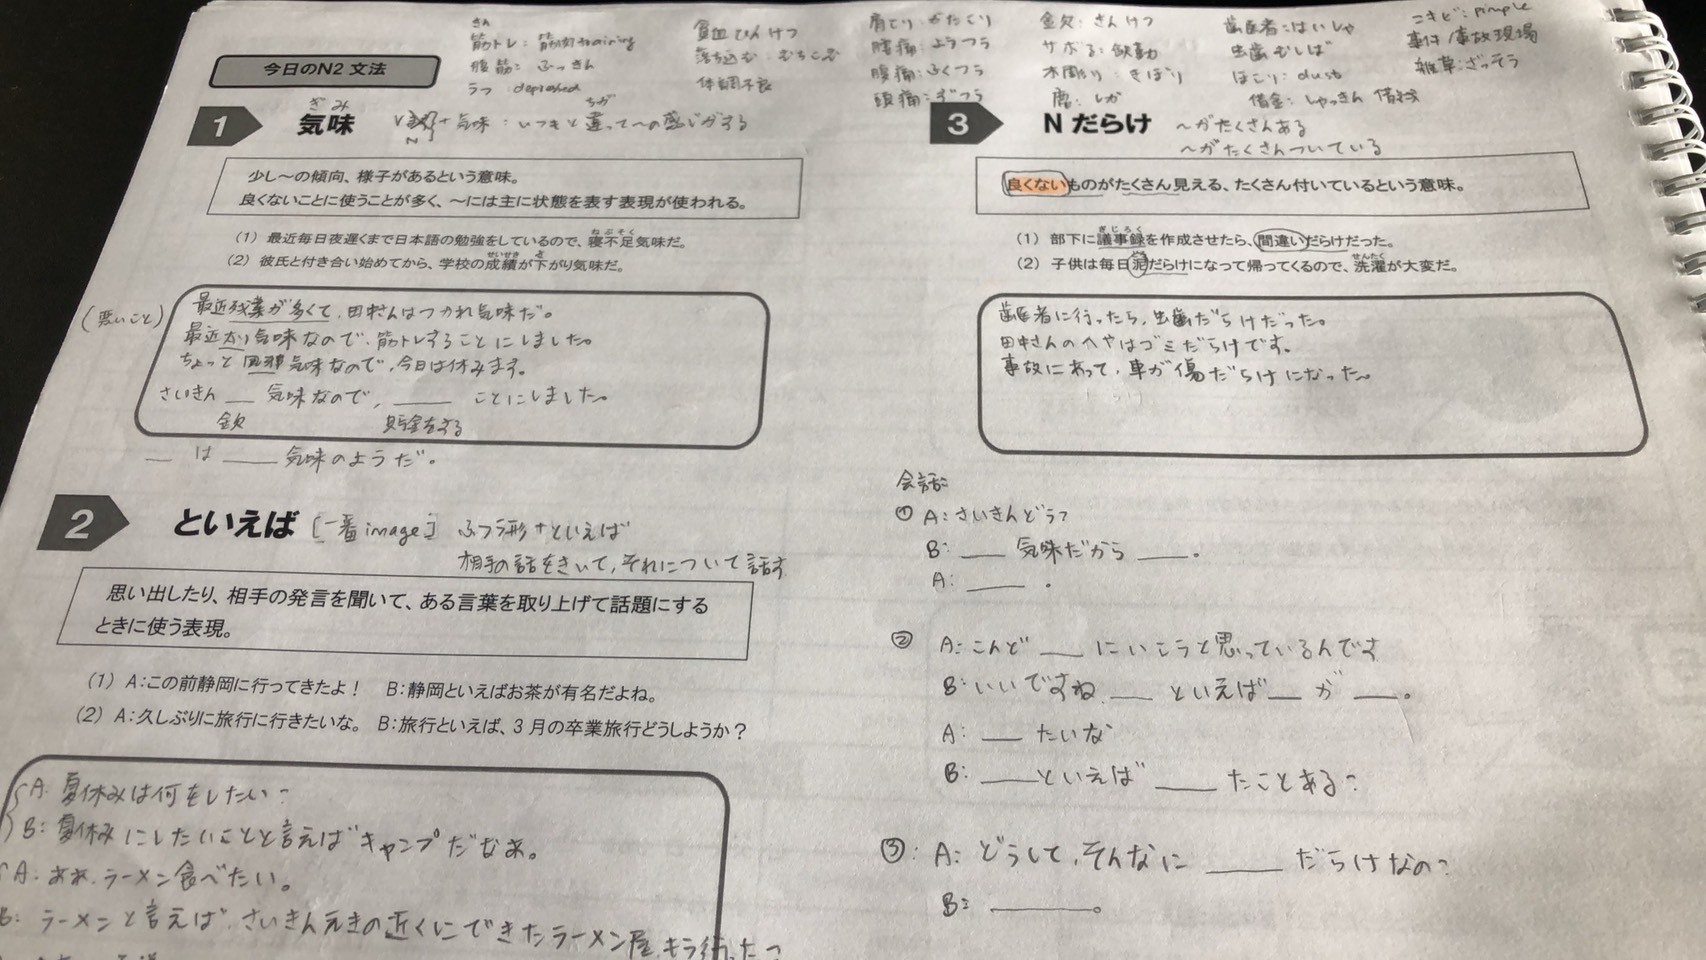 今日のN2文法
筋トレ：筋肉training
腹筋：ふっきん
うつ：depressed
貧血ひんけつ
落ち込む：
体調不良
肩こり：かたこり
腰痛：ようつう
腹痛：ふくつう
頭痛：ずつう
金欠：きんけつ
サボる：欠勤
木彫り：きぼり
鹿：しか
歯医者：はいしゃ
虫歯むしば
ほこり：dust
借金：しゃっきん
ニキビ：pimple
事件/事故現場
雑草：ざっそう
1
ぎみ
気味
N
+気味：いつもと違って〜の感じがする
ちが
少し〜の傾向、様子があるという意味。
良くないことに使うことが多く、〜には主に状態を表す表現が使われる。
(1) 最近毎日夜遅くまで日本語の勉強をしているので、寝不足気味だ。
ねぶそく
(2) 彼氏と付き合い始めてから、学校の成績が下がり気味だ。
せいせき
さ
(悪いこと)
最近残業が多くて、田中さんはつかれ気味だ。
最近太り気味なので、筋トレすることにしました。
ちょっと風邪気味なので、今日は休みます。
さいきん __ 気味なので、____ ことにしました。
金欠
貯金をする
__ は ____ 気味のようだ。
2
といえば
[一番image] ふつう形+といえば
相手の話をきいて、それについて話す
思い出したり、相手の発言を聞いて、ある言葉を取り上げて話題にする
ときに使う表現。
(1) A：この前静岡に行ってきたよ！ B：静岡といえばお茶が有名だよね。
(2) A：久しぶりに旅行に行きたいな。 B：旅行といえば、3月の卒業旅行どうしようか？
A: 夏休みは何をしたい？
B: 夏休みにしたいことと言えばキャンプだなあ。
A: ああ、ラーメン食べたい。
B: ラーメンと言えば、さいきんえきの近くにできたラーメン屋、もう行った？
3
Nだらけ
〜がたくさんある
〜がたくさんついている
良くないものがたくさん見える、たくさん付いているという意味。
(1) 部下に議事録を作成させたら、間違いだらけだった。
ぎじろく
(2) 子供は毎日泥だらけになって帰ってくるので、洗濯が大変だ。
せんたく
歯医者に行ったら、虫歯だらけだった。
田中さんのへやはゴミだらけです。
事故にあって、車が傷だらけになった。
会話:
① A: さいきんどう？
B: ___ 気味だから ___。
A: ____ .
② A: こんど ___ にいこうと思っているんです
B: いいですね、___ といえば __ が ___。
A: ___ たいな
B: ___ といえば ____ たことある？
③: A: どうして、そんなに _____ だらけなの？
B: _______。